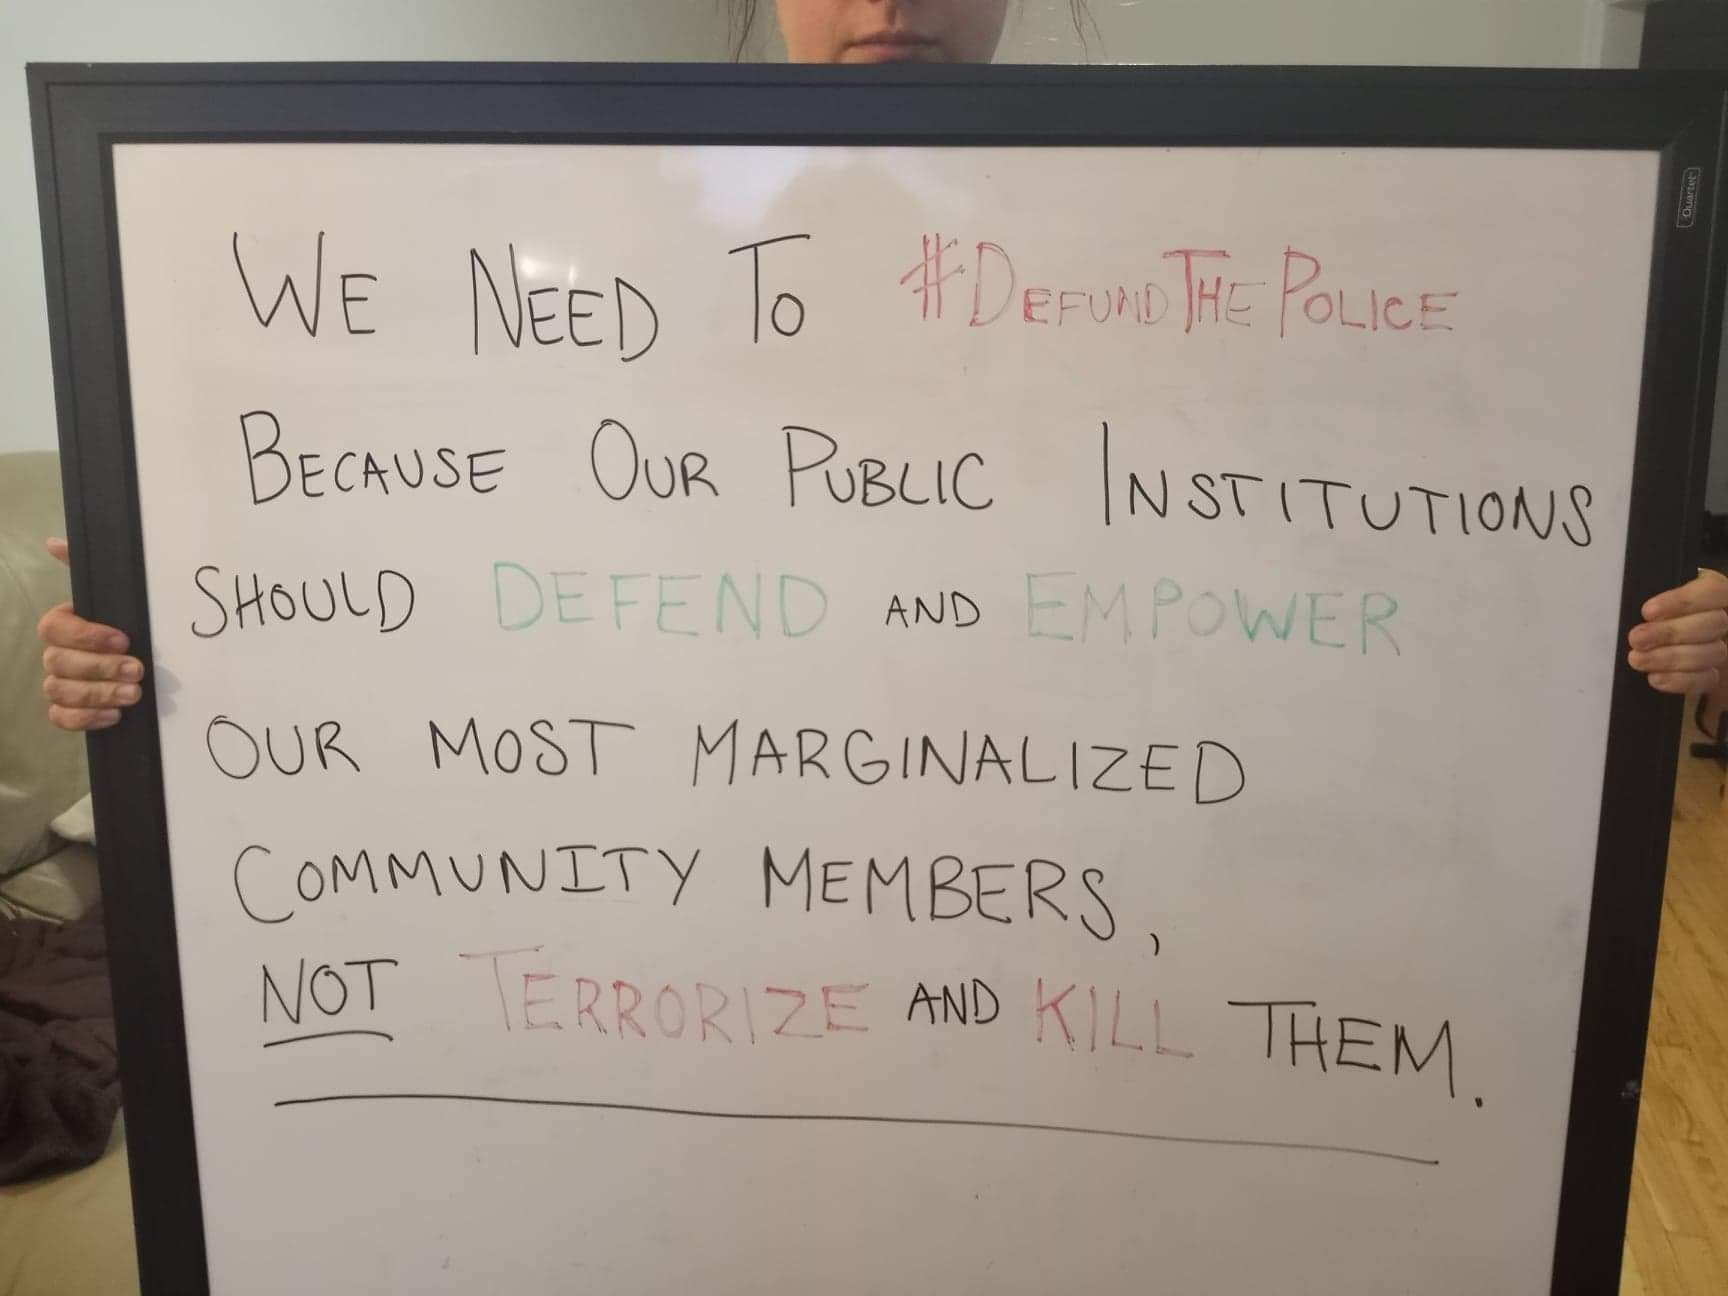 Quartet
WE NEED TO #DEFUNDTHEPOLICE
BECAUSE OUR PUBLIC INSTITUTIONS
SHOULD DEFEND AND EMPOWER
OUR MOST MARGINALIZED
COMMUNITY MEMBERS,
NOT TERRORIZE AND KILL THEM.